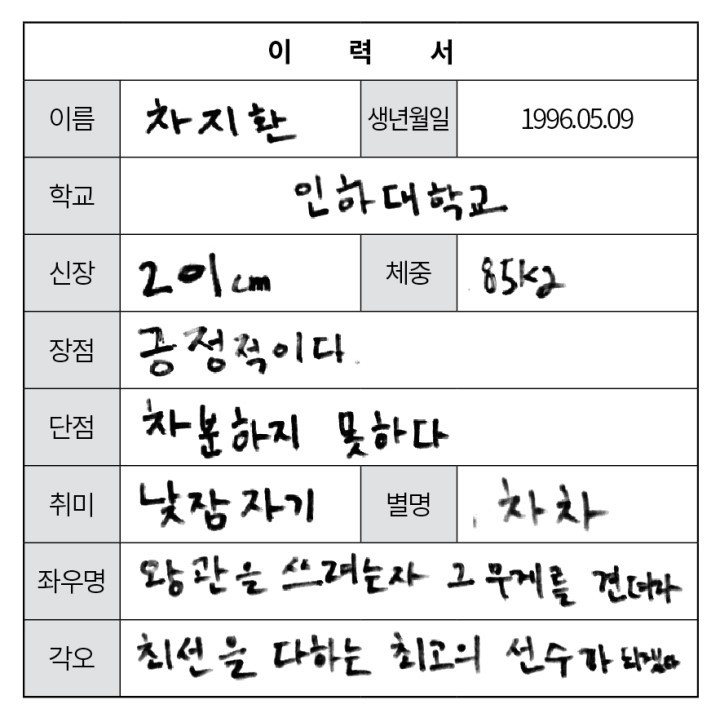 이 력 서
이름 차지환 생년월일 1996.05.09
학교 인하대학교
신장 201cm 체중 85kg
장점 긍정적이다.
단점 차분하지 못하다
취미 낮잠 자기 별명 차차
좌우명 왕관을 쓰려는자 그 무게를 견뎌라
각오 최선을 다하는 최고의 선수가 되겠다